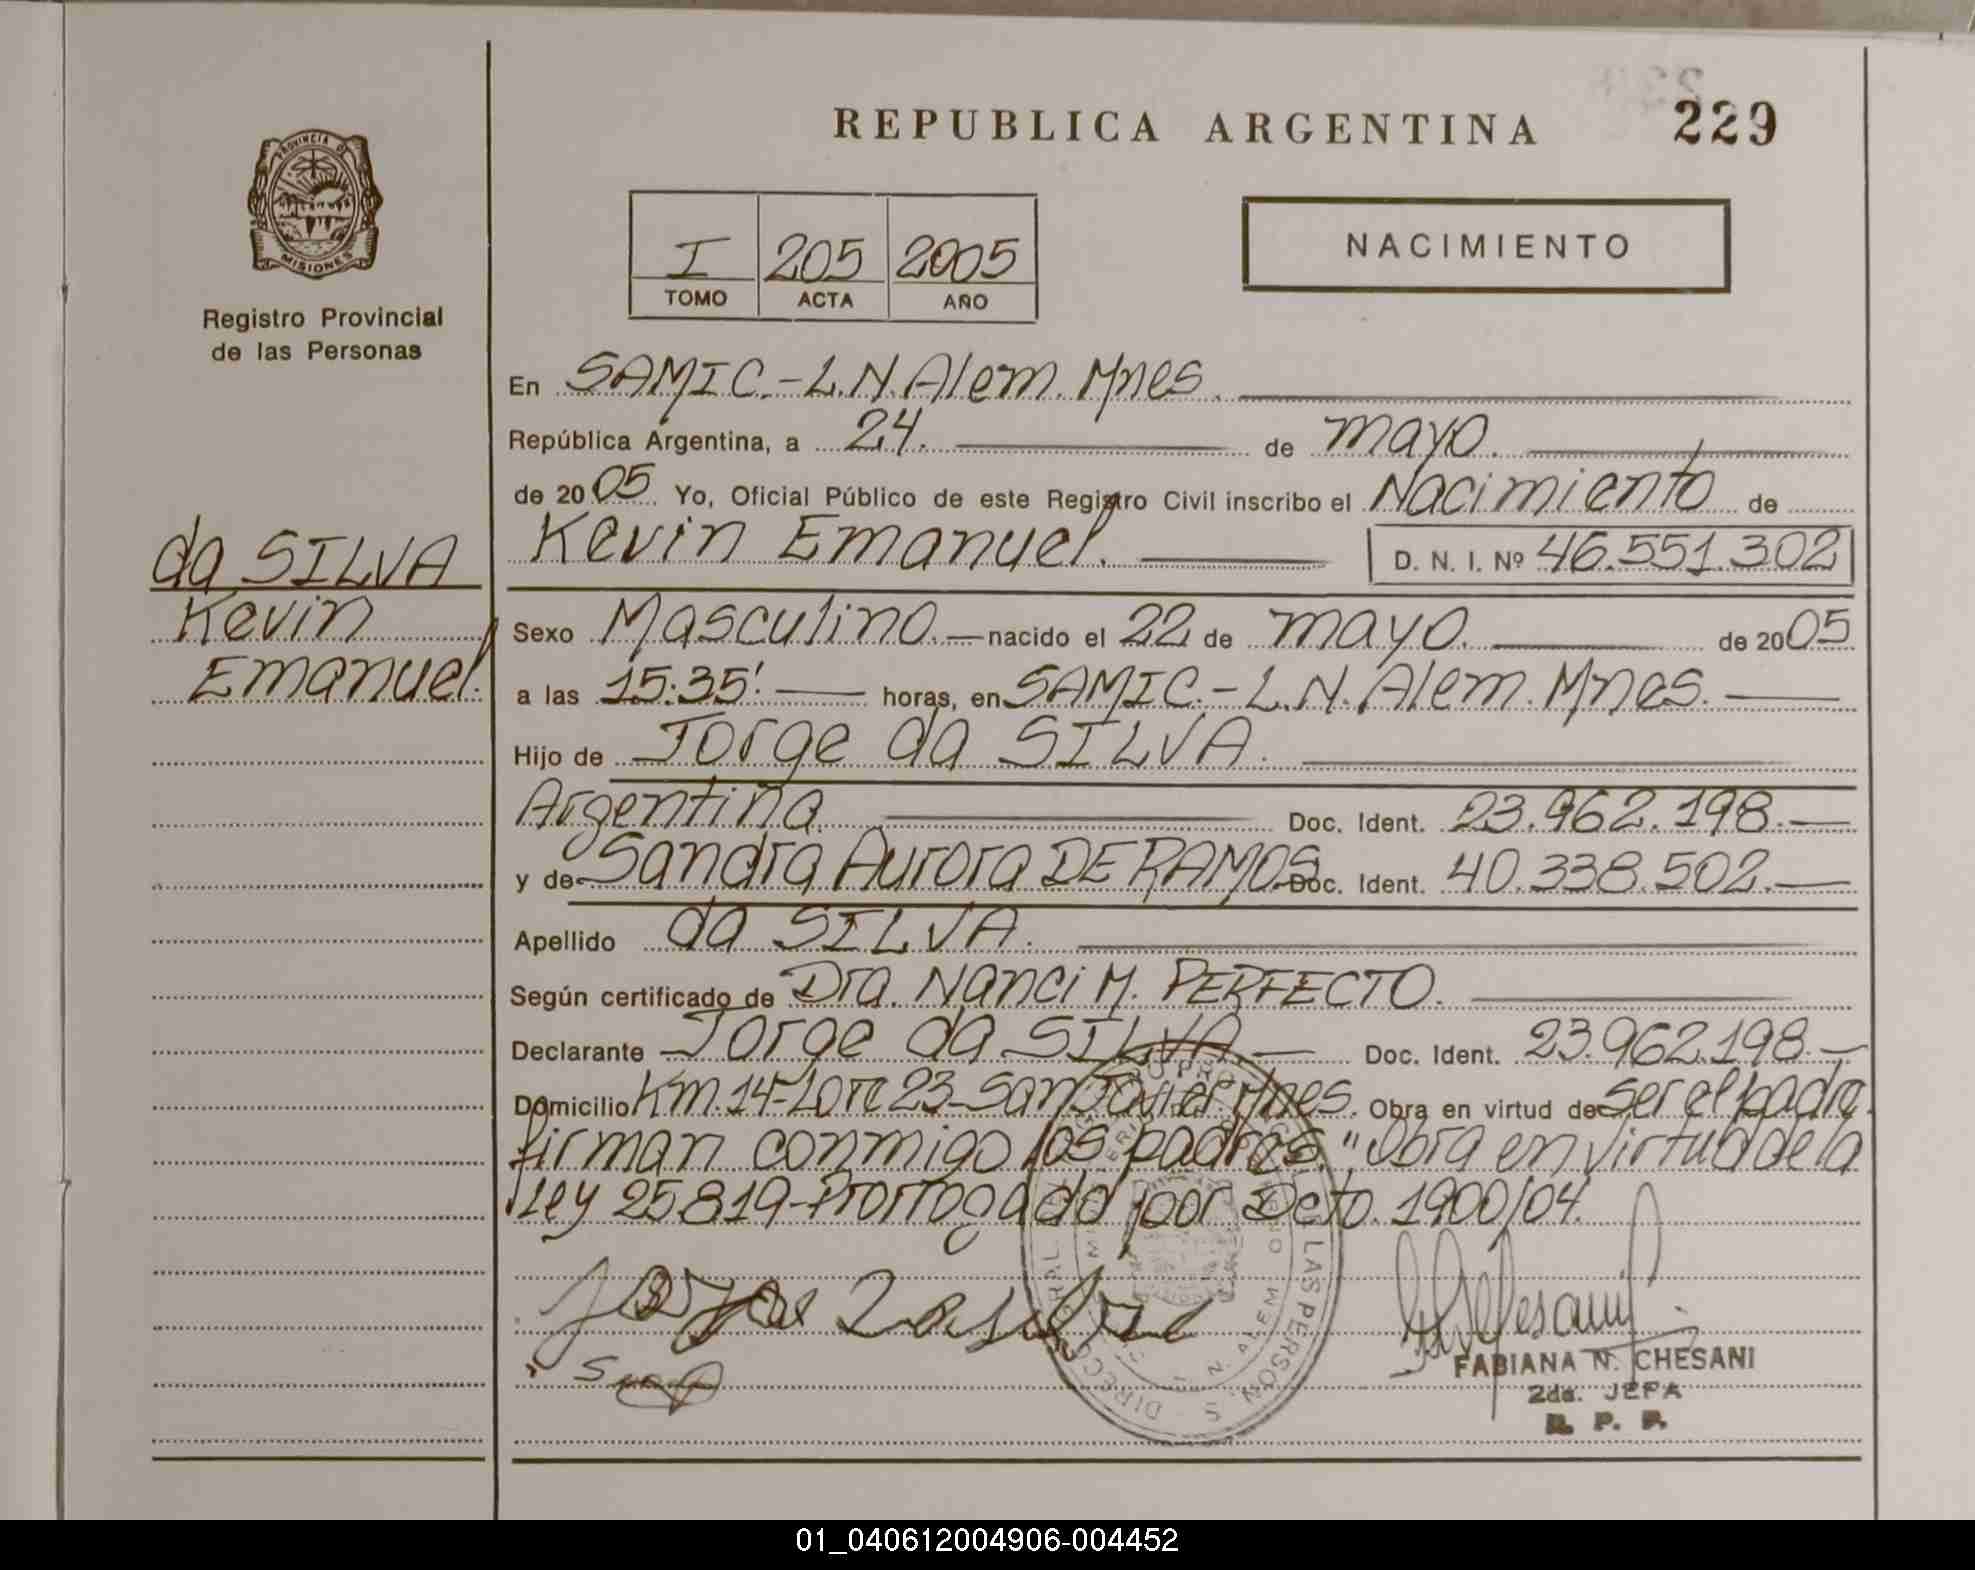 REPUBLICA ARGENTINA 229
PROVINCIA DE
MISIONES
Registro Provincial
de las Personas
I 205 2005
TOMO ACTA AÑO
NACIMIENTO
da SILVA
Kevin
Emanuel.
En SAMIC.-L.N.Alem.Mnes.
República Argentina, a 24. de mayo.
de 2005 Yo, Oficial Público de este Registro Civil inscribo el Nacimiento de
Kevin Emanuel. D. N. I. Nº 46.551.302
Sexo Masculino.- nacido el 22 de mayo. de 2005
a las 15:35'. horas, en SAMIC.-L.N.Alem.Mnes.
Hijo de Jorge da SILVA.
Argentina. Doc. Ident. 23.962.198.-
y de Sandra Aurora DE RAMOS Doc. Ident. 40.338.502.-
Apellido da SILVA.
Según certificado de Dra. Nanci M. PERFECTO.
Declarante Jorge da SILVA.- Doc. Ident. 23.962.198.-
Domicilio Km.14-Lote 23-San Javier Mnes. Obra en virtud de ser el padre.
firman conmigo los padres. "Obra en virtud de la
Ley 25819-Prorrogado por Dcto. 1900/04.
FABIANA N. CHESANI
2da. JEFA
R. P. P.
01_040612004906-004452